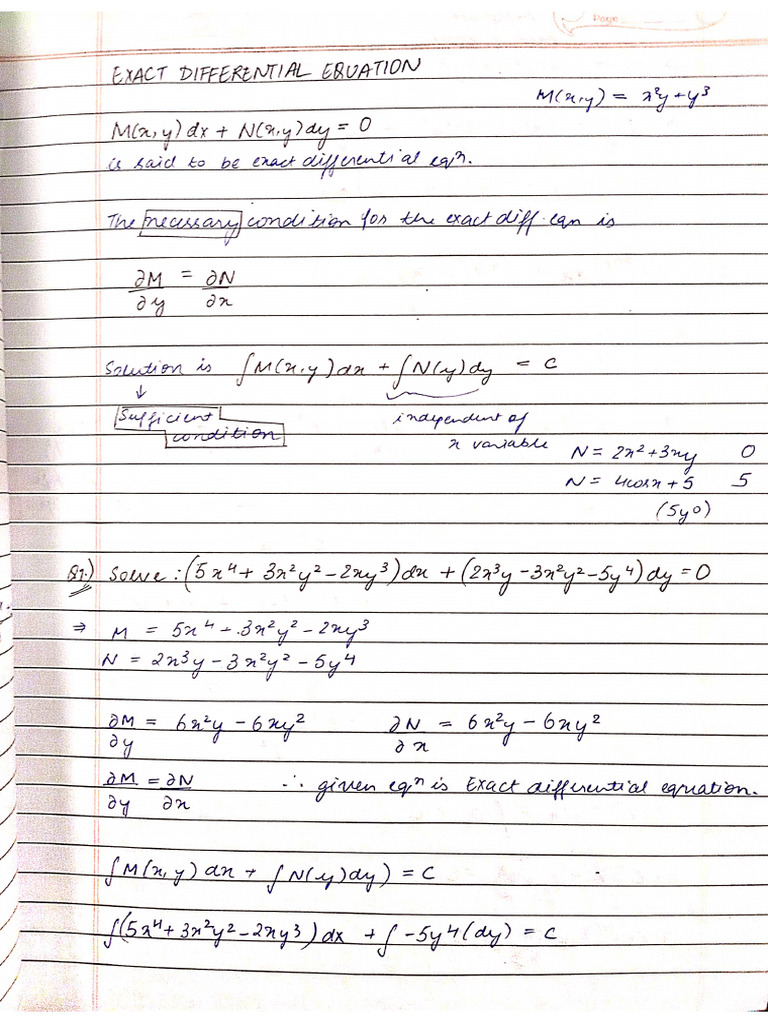 Page
EXACT DIFFERENTIAL EQUATION
M(x,y) = x²y + y³
M(x,y)dx + N(x,y)dy = 0
is said to be exact differential eqⁿ.
The necessary condition for the exact diff. eqn is
∂M/∂y = ∂N/∂x
Solution is ∫M(x,y)dx + ∫N(y)dy = c
↓
Sufficient condition
independent of
x variable
N = 2x² + 3xy 0
N = 4cosx + 5 5
(5y⁰)
Q1.) Solve : (5x⁴ + 3x²y² - 2xy³)dx + (2x³y - 3x²y² - 5y⁴)dy = 0
⇒ M = 5x⁴ + 3x²y² - 2xy³
N = 2x³y - 3x²y² - 5y⁴
∂M/∂y = 6x²y - 6xy² ∂N/∂x = 6x²y - 6xy²
∂M/∂y = ∂N/∂x ∴ given eqⁿ is Exact differential equation.
∫M(x,y) dx + ∫N(y)dy) = c
∫(5x⁴ + 3x²y² - 2xy³)dx + ∫-5y⁴(dy) = c